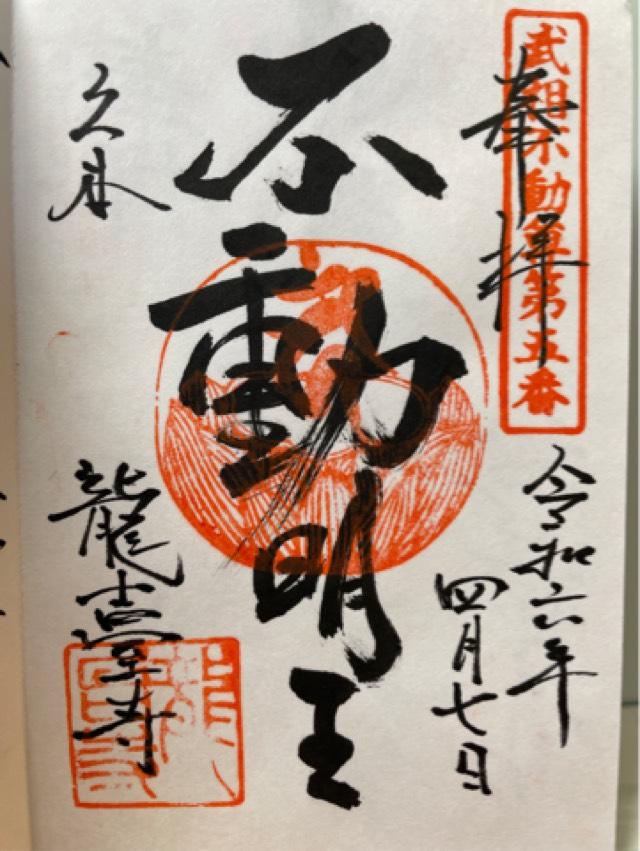 武相不動尊第五番
奉拝
令和六年
四月七日
不動明王
久本
龍臺寺